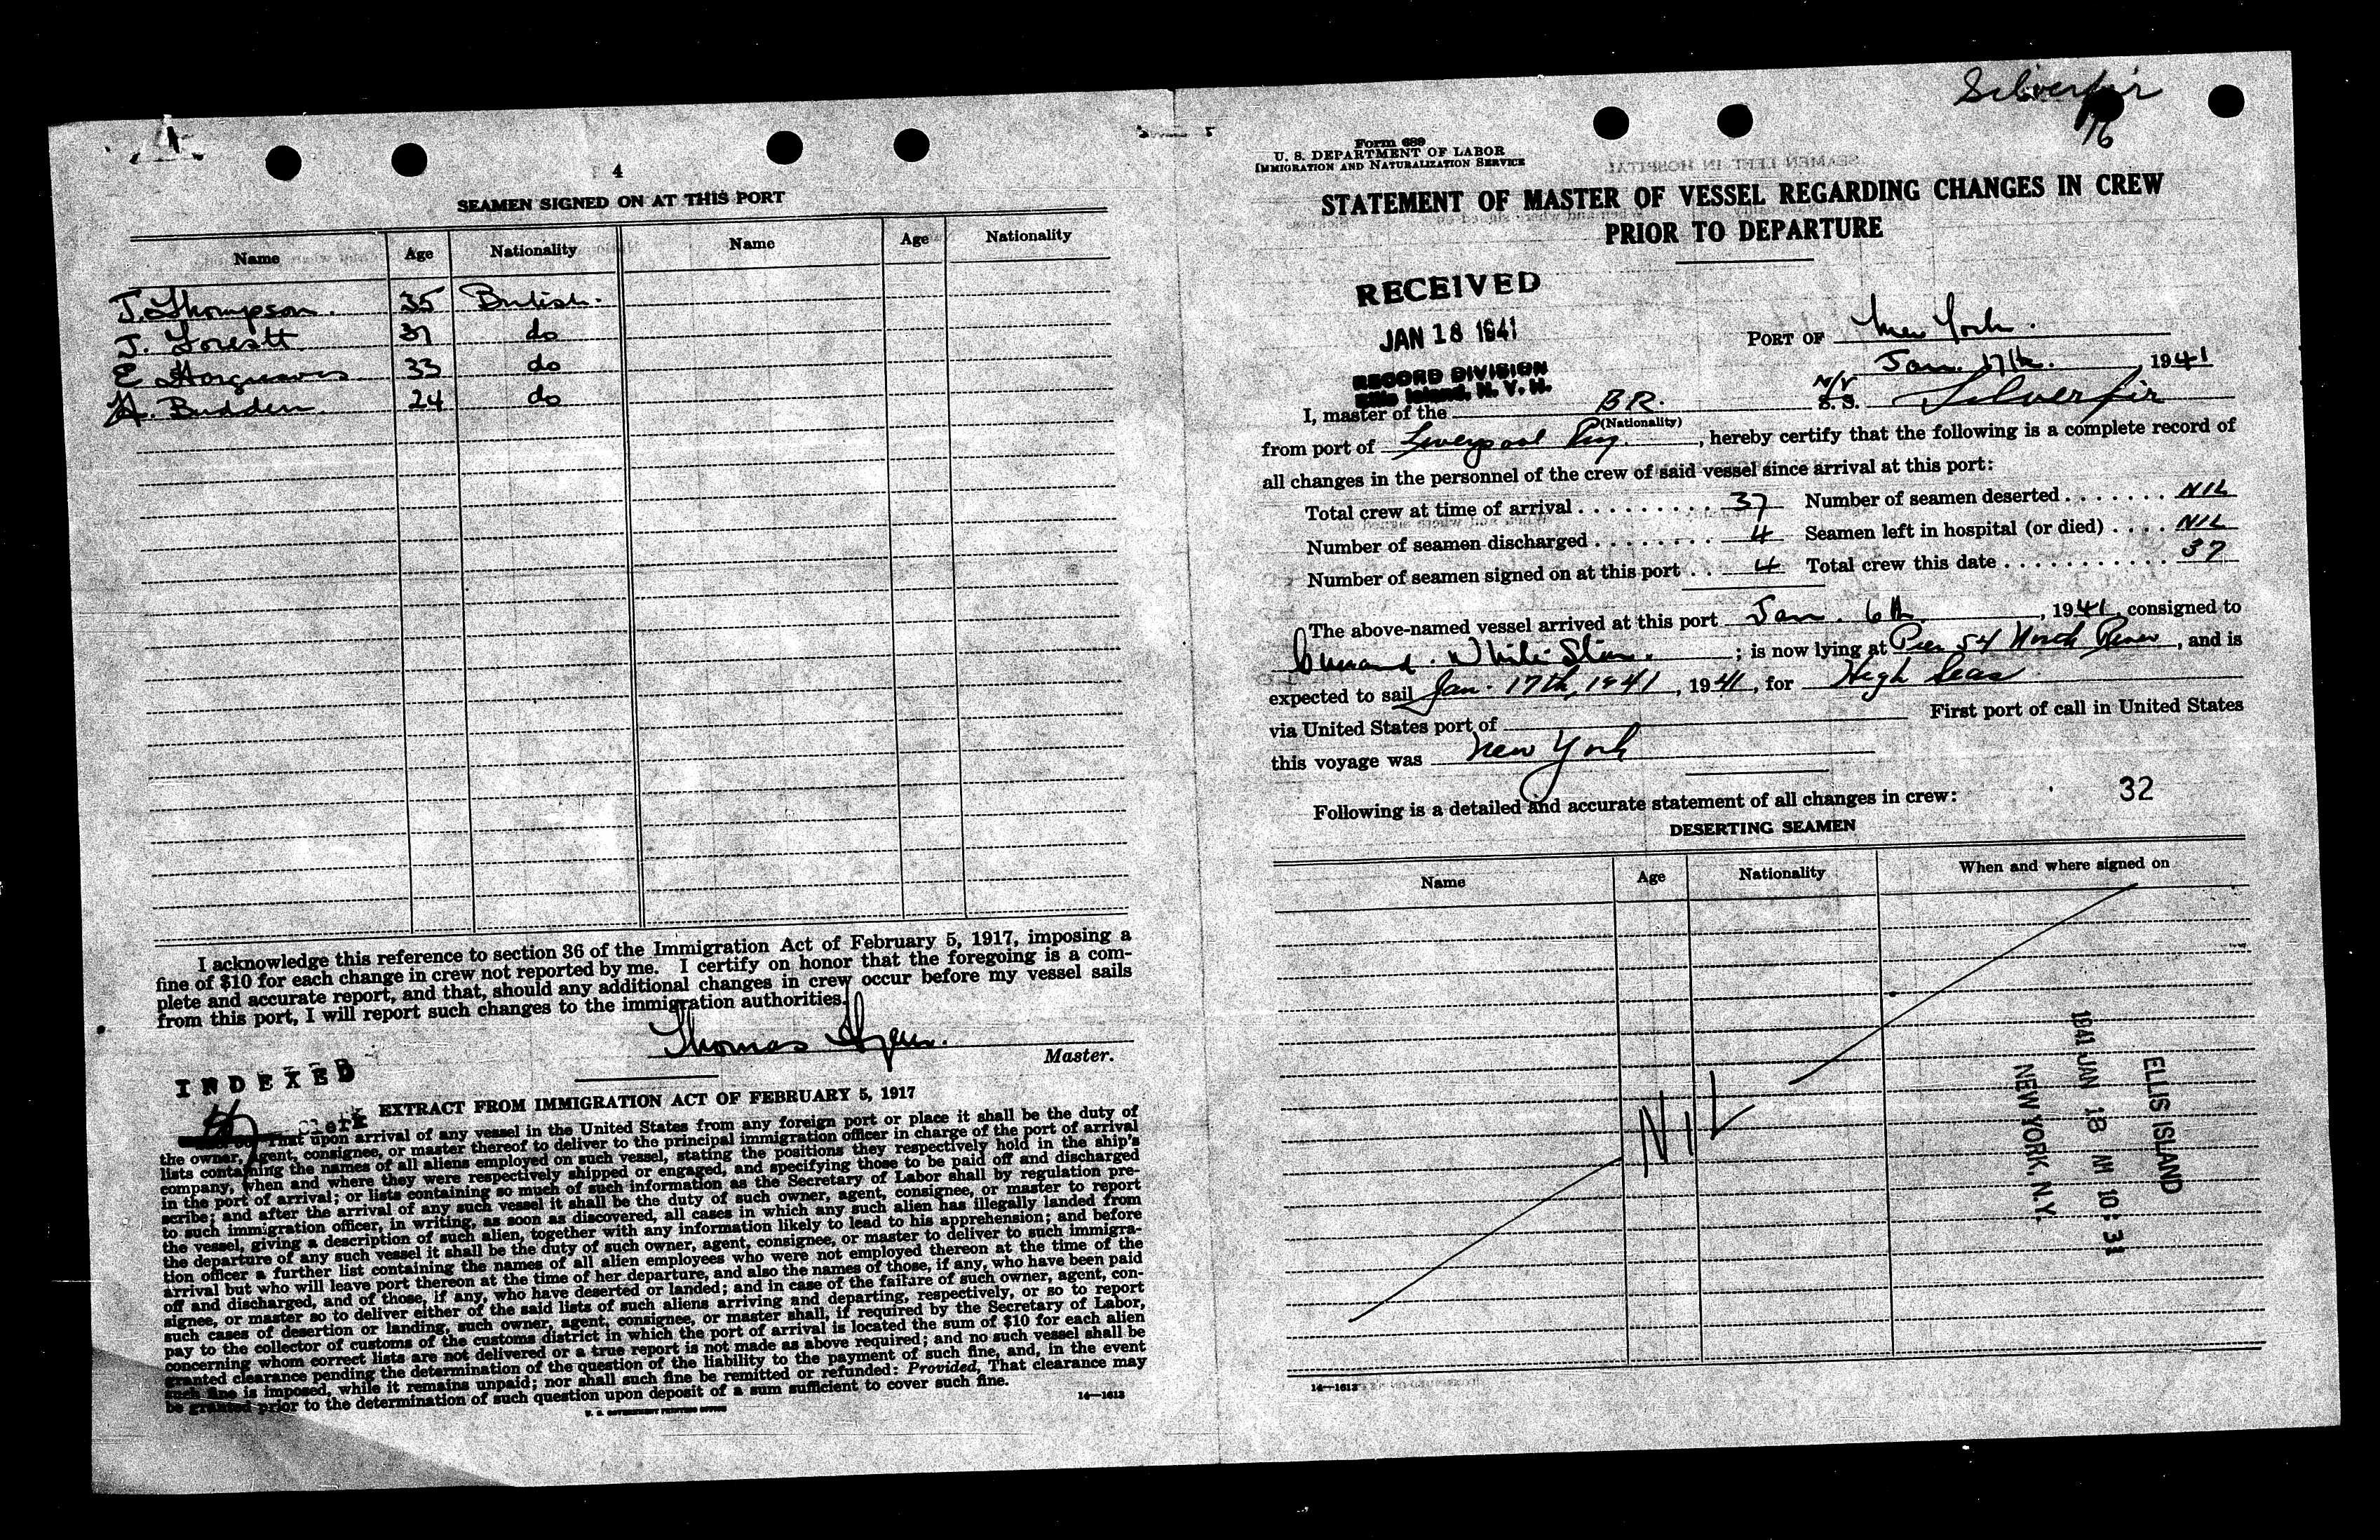 4
SEAMEN SIGNED ON AT THIS PORT
Name Age Nationality Name Age Nationality
J. Thompson. 35 British.
J. 37 do
E Hargreaves 33 do
A. Budden 24 do
I acknowledge this reference to section 36 of the Immigration Act of February 5, 1917, imposing a
fine of $10 for each change in crew not reported by me. I certify on honor that the foregoing is a com-
plete and accurate report, and that, should any additional changes in crew occur before my vessel sails
from this port, I will report such changes to the immigration authorities.
Thomas
Master.
INDEXED
Clerk
EXTRACT FROM IMMIGRATION ACT OF FEBRUARY 5, 1917
That upon arrival of any vessel in the United States from any foreign port or place it shall be the duty of
the owner, agent, consignee, or master thereof to deliver to the principal immigration officer in charge of the port of arrival
lists containing the names of all aliens employed on such vessel, stating the positions they respectively hold in the ship's
company, when and where they were respectively shipped or engaged, and specifying those to be paid off and discharged
in the port of arrival; or lists containing so much of such information as the Secretary of Labor shall by regulation pre-
scribe; and after the arrival of any such vessel it shall be the duty of such owner, agent, consignee, or master to report
to such immigration officer, in writing, as soon as discovered, all cases in which any such alien has illegally landed from
the vessel, giving a description of such alien, together with any information likely to lead to his apprehension; and before
the departure of any such vessel it shall be the duty of such owner, agent, consignee, or master to deliver to such immigra-
tion officer a further list containing the names of all alien employees who were not employed thereon at the time of the
arrival but who will leave port thereon at the time of her departure, and also the names of those, if any, who have been paid
off and discharged, and of those, if any, who have deserted or landed; and in case of the failure of such owner, agent, con-
signee, or master so to deliver either of the said lists of such aliens arriving and departing, respectively, or so to report
such cases of desertion or landing, such owner, agent, consignee, or master shall, if required by the Secretary of Labor,
pay to the collector of customs of the customs district in which the port of arrival is located the sum of $10 for each alien
concerning whom correct lists are not delivered or a true report is not made as above required; and no such vessel shall be
granted clearance pending the determination of the question of the liability to the payment of such fine, and, in the event
such fine is imposed, while it remains unpaid; nor shall such fine be remitted or refunded: Provided, That clearance may
be granted prior to the determination of such question upon deposit of a sum sufficient to cover such fine.
14—1613
U. S. GOVERNMENT PRINTING OFFICE
Silverfir
16
Form 689
U. S. DEPARTMENT OF LABOR
IMMIGRATION AND NATURALIZATION SERVICE
STATEMENT OF MASTER OF VESSEL REGARDING CHANGES IN CREW
PRIOR TO DEPARTURE
RECEIVED
JAN 18 1941
RECORD DIVISION
Ellis Island, N. Y. H.
PORT OF New York.
Jan. 17th. 1941
I, master of the BR. M/V S. S. Silverfir
(Nationality)
from port of Liverpool Eng., hereby certify that the following is a complete record of
all changes in the personnel of the crew of said vessel since arrival at this port:
Total crew at time of arrival . . . . . . . . . 37 Number of seamen deserted . . . . . . . NIL
Number of seamen discharged . . . . . . . . 4 Seamen left in hospital (or died) . . . . NIL
Number of seamen signed on at this port . . 4 Total crew this date . . . . . . . . . . . 37
The above-named vessel arrived at this port Jan. 6th, 1941, consigned to
Cunard. White Star. ; is now lying at Pier 54 North River, and is
expected to sail Jan. 17th, 1941, 1941, for High Seas
via United States port of First port of call in United States
this voyage was New York
Following is a detailed and accurate statement of all changes in crew: 32
DESERTING SEAMEN
Name Age Nationality When and where signed on
NIL
ELLIS ISLAND
1941 JAN 18 AM 10:31
NEW YORK N.Y.
14—1613